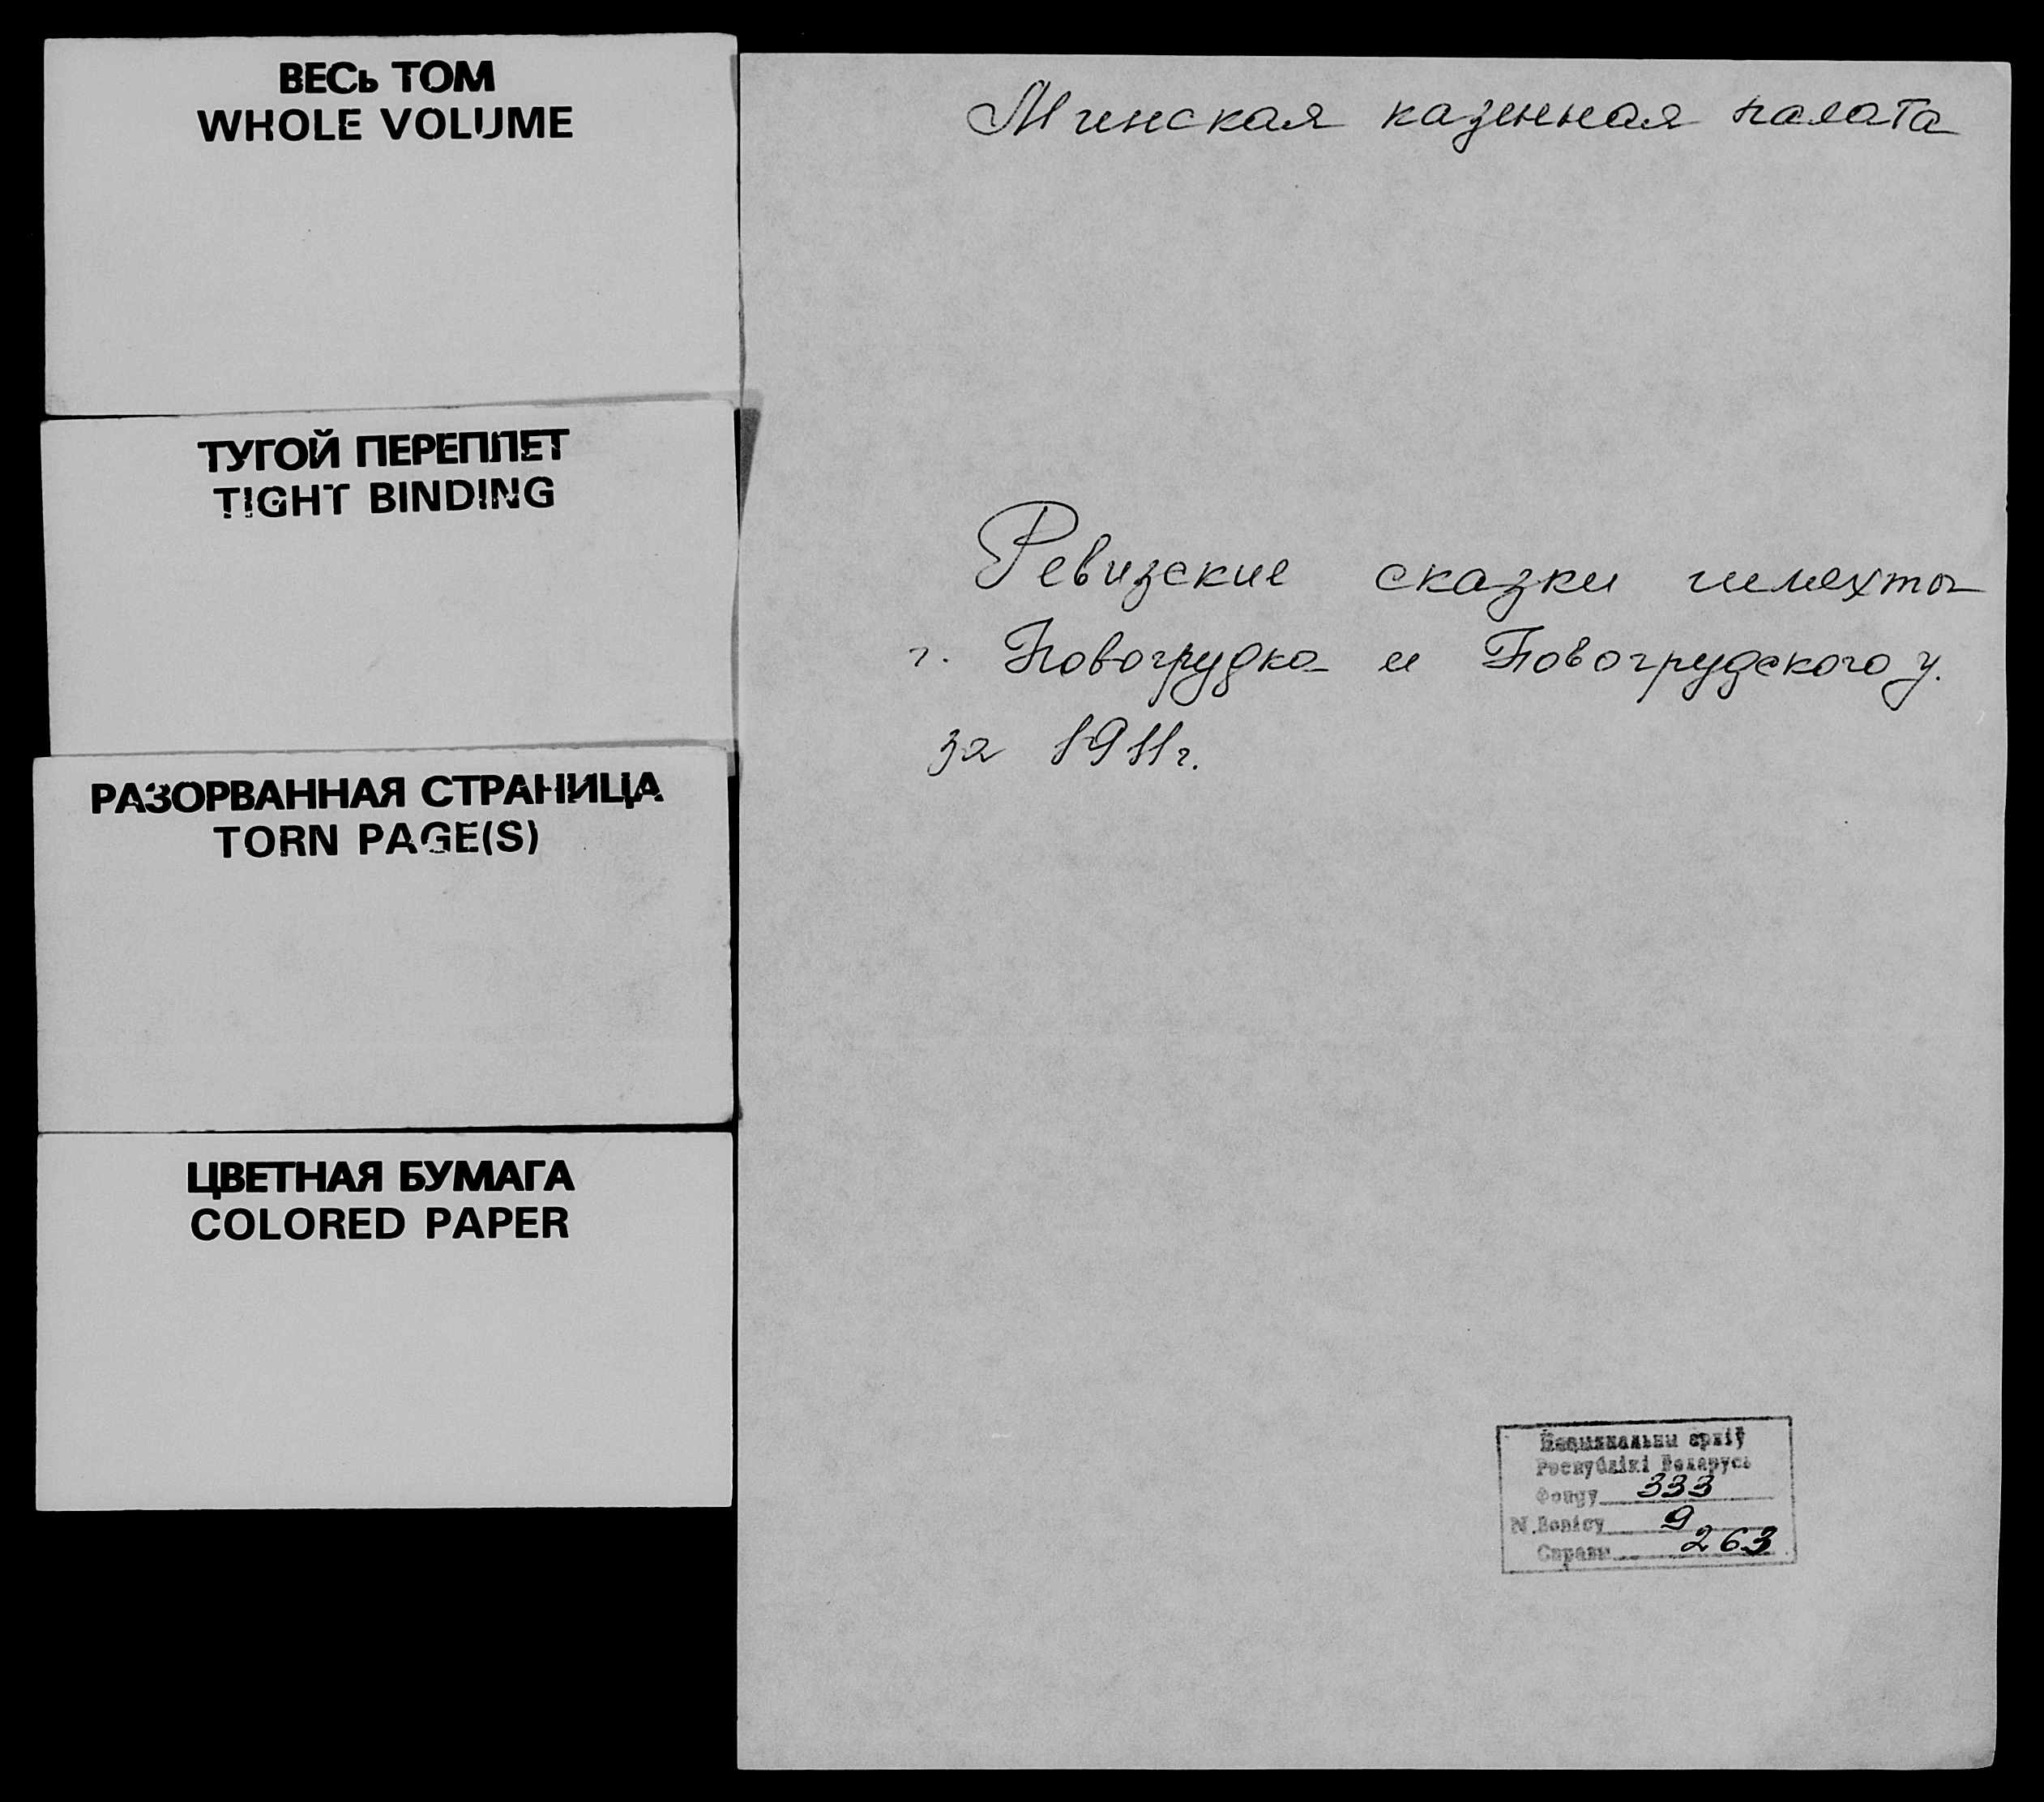 ВЕСЬ ТОМ
WHOLE VOLUME
ТУГОЙ ПЕРЕПЛЕТ
TIGHT BINDING
РАЗОРВАННАЯ СТРАНИЦА
TORN PAGE(S)
ЦВЕТНАЯ БУМАГА
COLORED PAPER
Минская казенная палата
Ревизские сказки шляхты
г. Новогрудка и Новогрудского у.
за 1911г.
Нацыянальны архіў
Рэспублікі Беларусь
Фонду 333
N.Вопісу 9
Справы 263